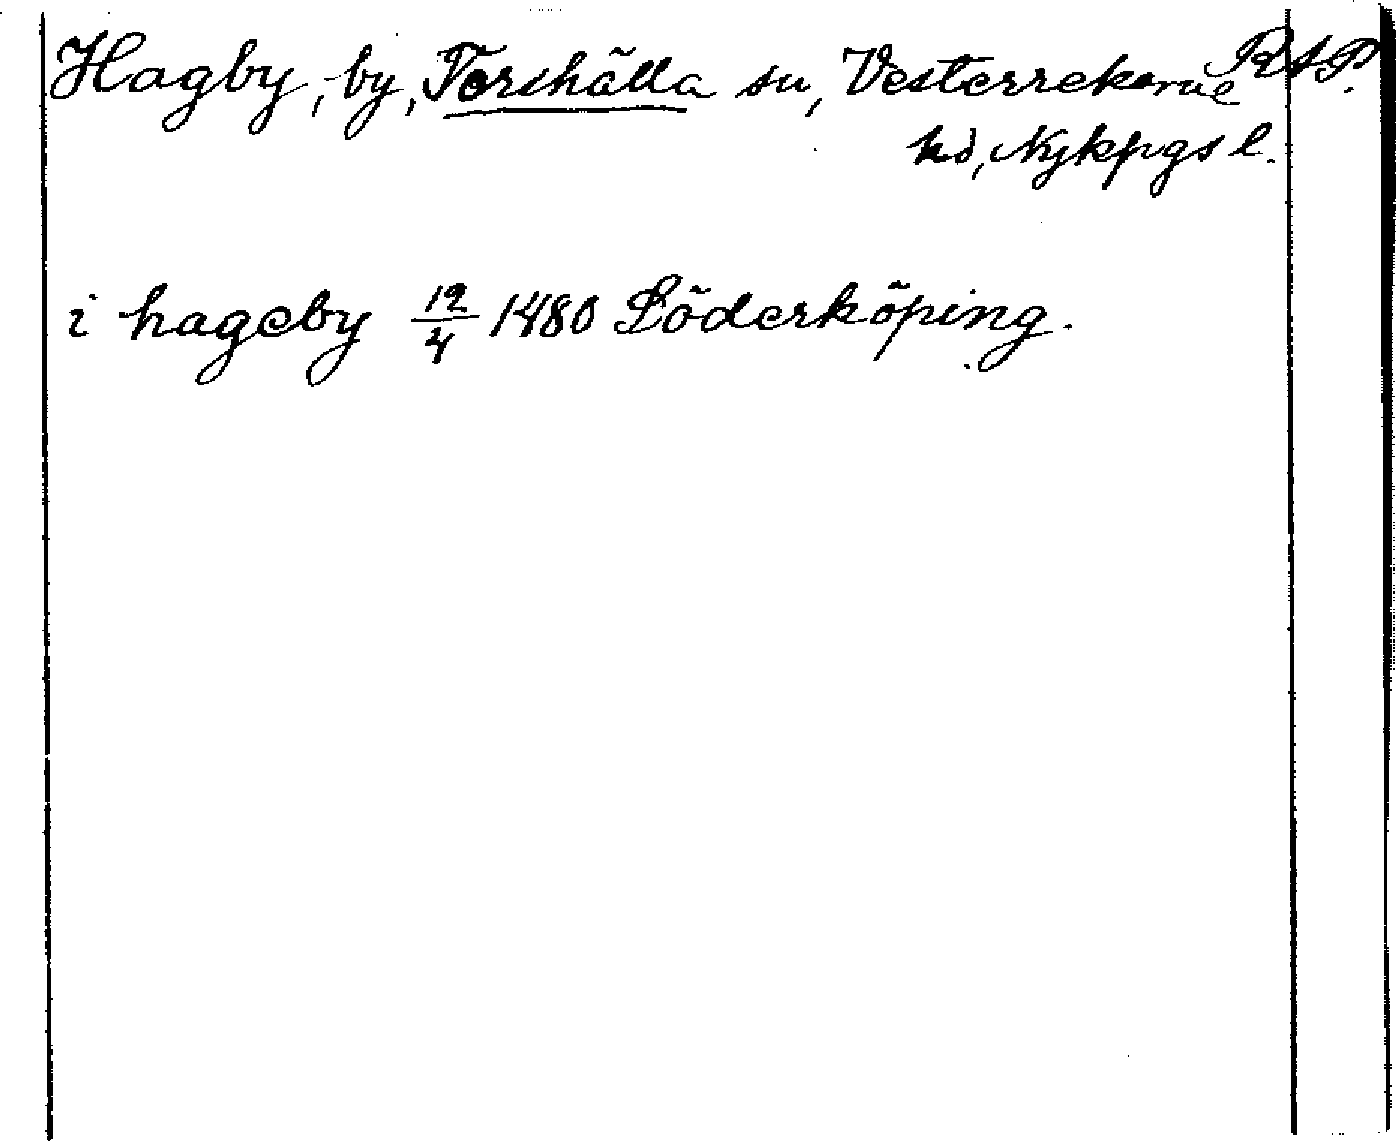 Hagby, by, Torshälla sn, Vesterrekarne RAP.
hd, Nykpgs l.
i hageby 12/4 1480 Söderköping.